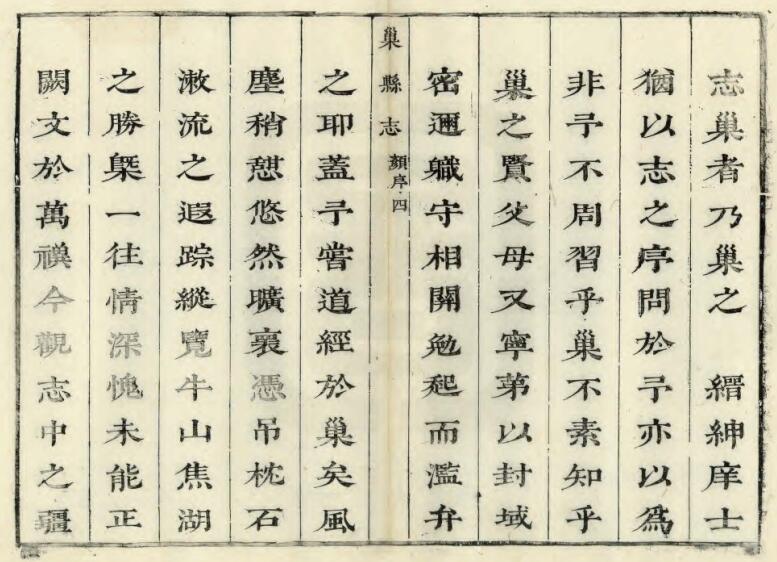 志巢者乃巢之　縉紳庠士
猶以志之序問於予亦以爲
非予不周習乎巢不素知乎
巢之賢父母又寧第以封域
密邇職守相關勉起而濫弁
巢縣志 顏序 四
之耶蓋予嘗道經於巢矣風
塵稍憇悠然曠褱憑吊枕石
漱流之遐踪縱覽牛山焦湖
之勝槩一往情深愧未能正
闕文於萬禩今觀志中之疆